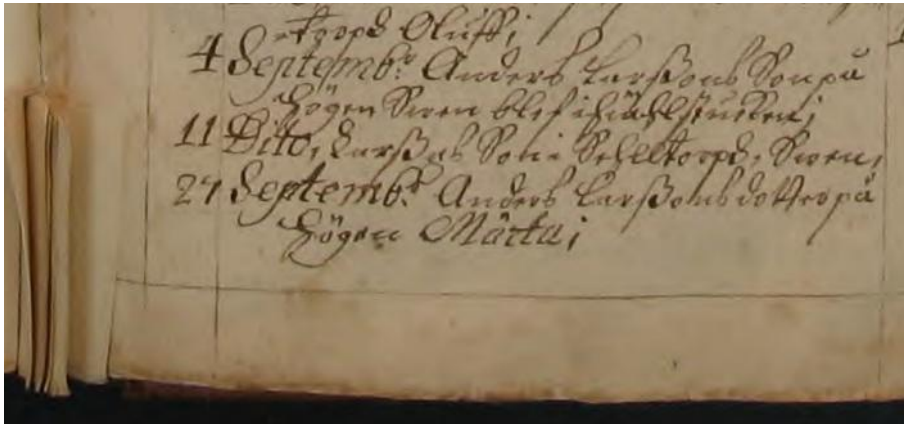 etorpd Oluff;
4 Septemb.r Anders Larßons Son på
Högen Swen blef ihiählstucken;
11 Dito, Larß Son i Selltorpd, Swen,
27 Septemb.r Anders Larßons dotter på
Högen Märta;